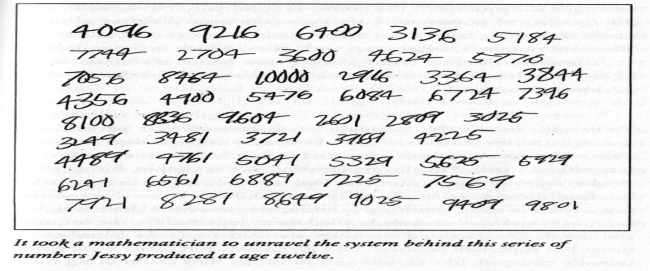 4096 9216 6400 3136 5184
7744 2704 3600 4624 5776
7056 8464 10000 2916 3364 3844
4356 4900 5476 6084 6724 7396
8100 8836 9604 2601 2809 3025
3249 3481 3721 3969 4225
4489 4761 5041 5329 5625 5929
6241 6561 6889 7225 7569
7921 8281 8649 9025 9409 9801
It took a mathematician to unravel the system behind this series of
numbers Jessy produced at age twelve.